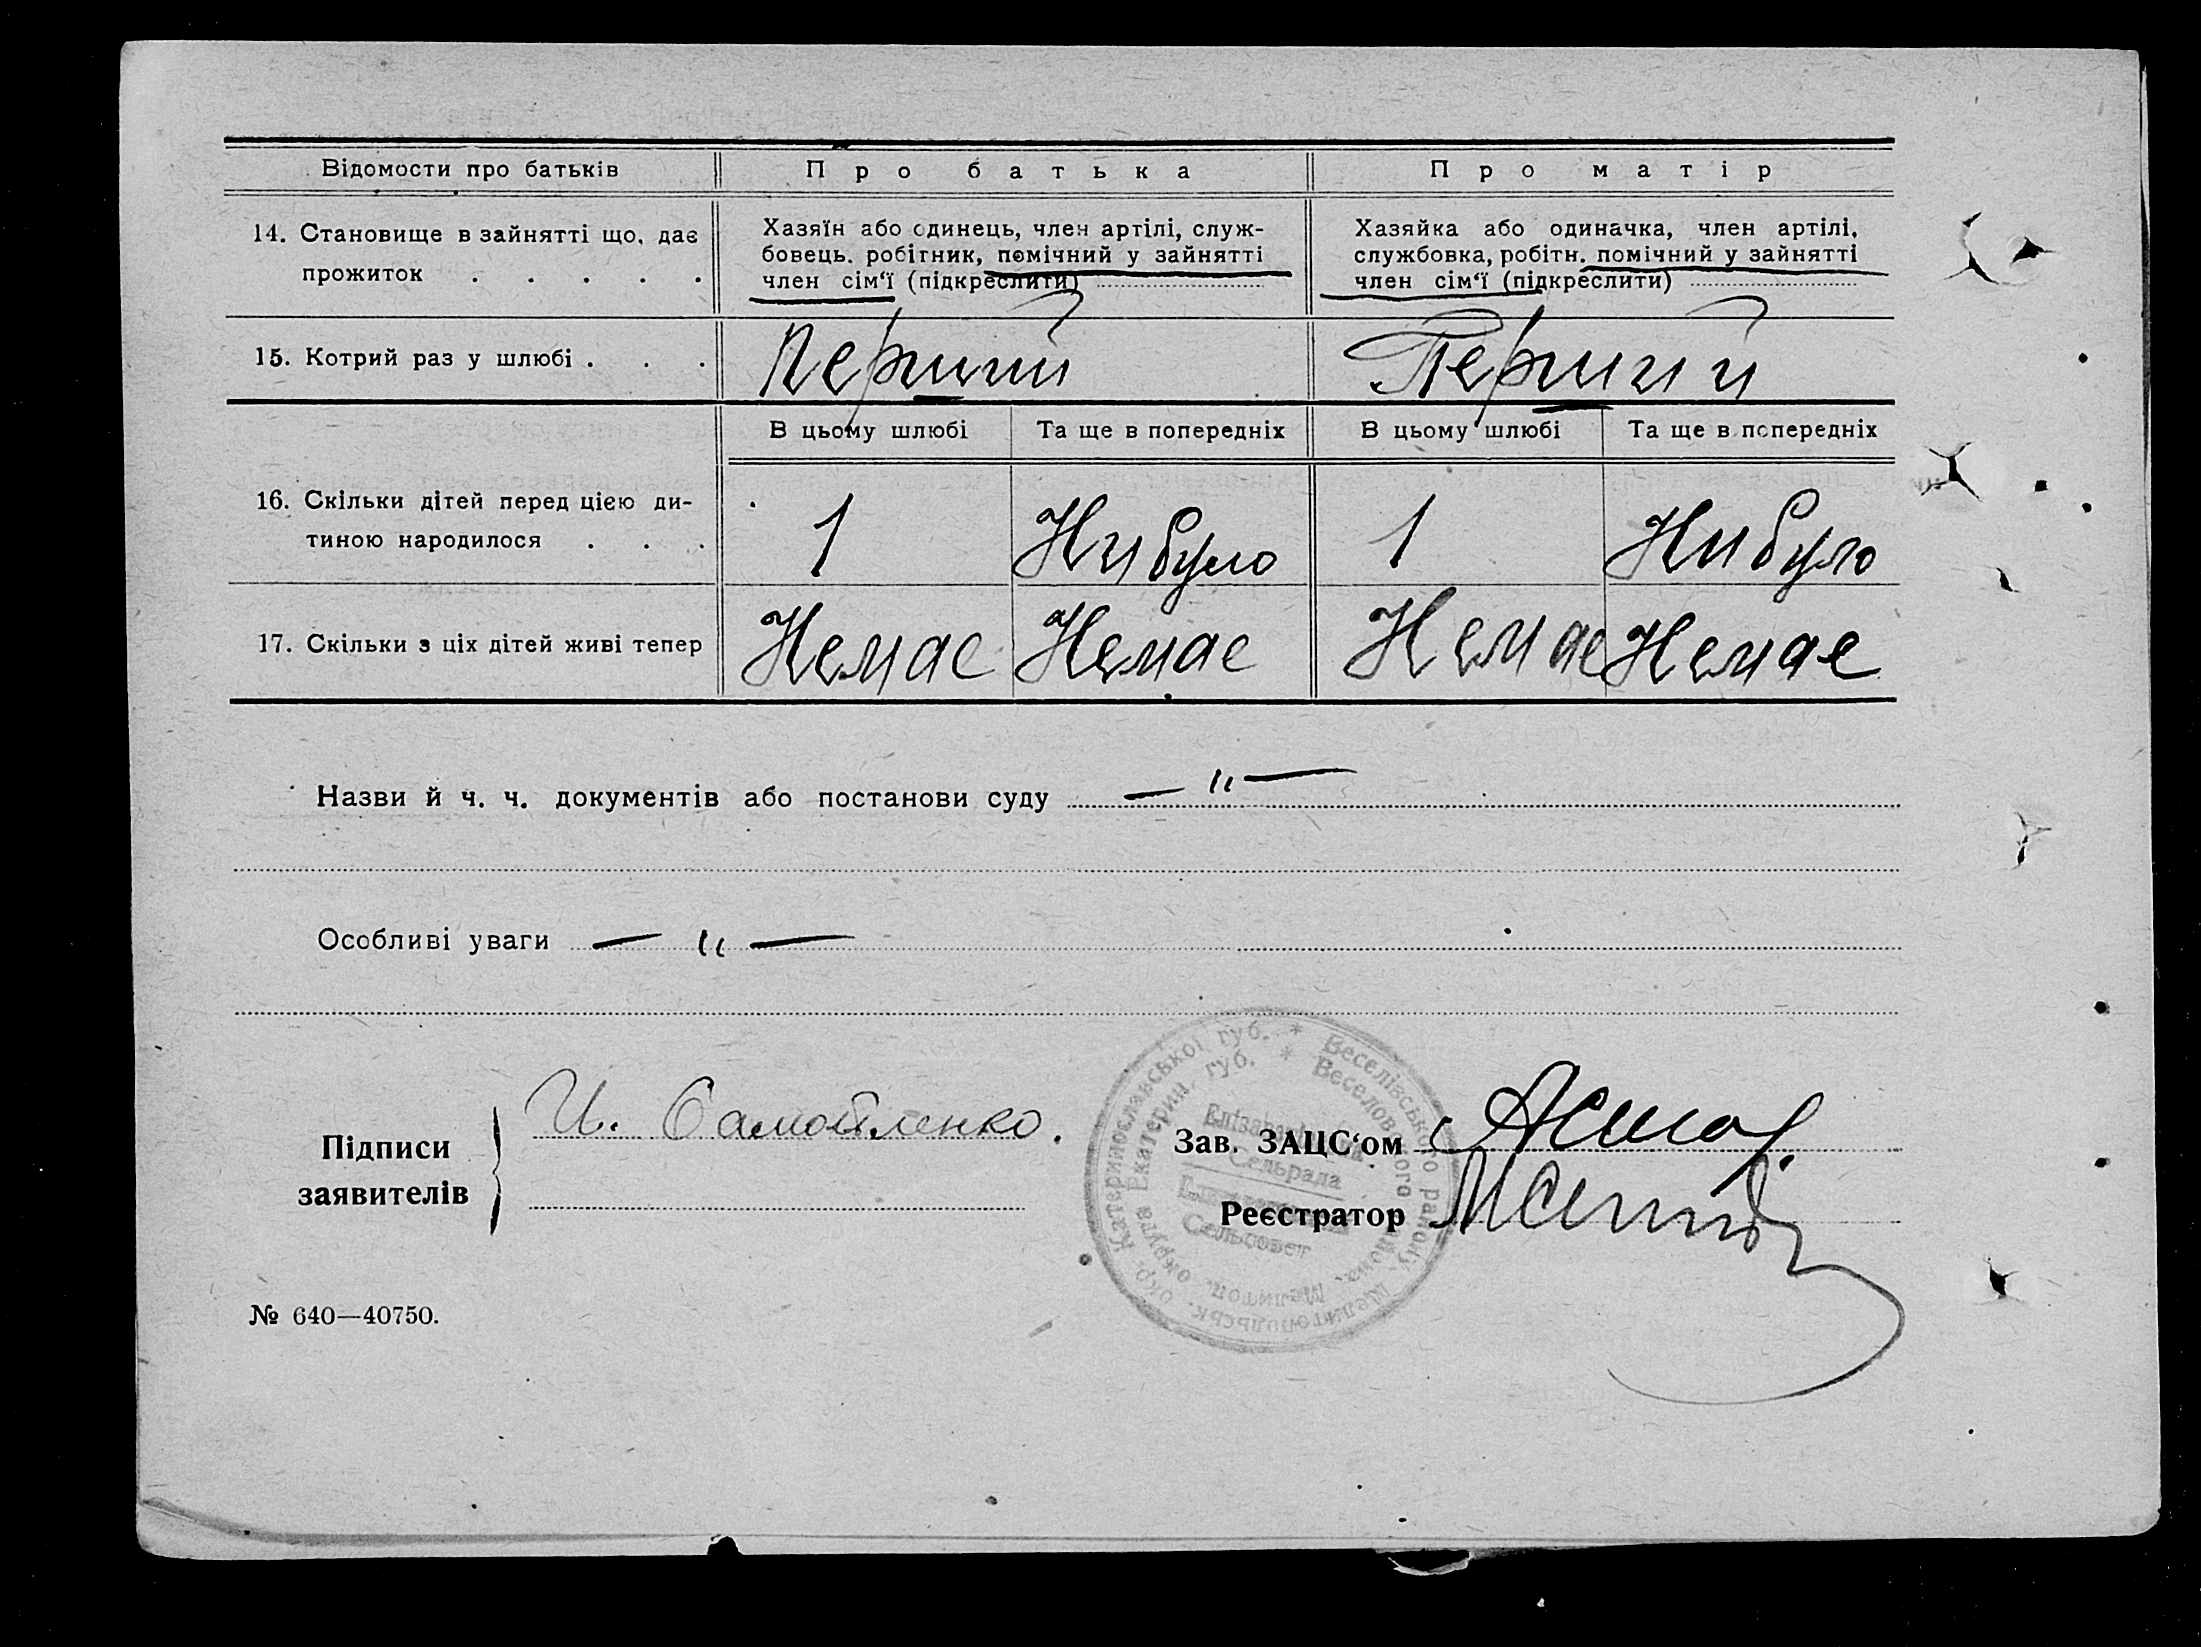 Відомости про батьків Про батька Про матір
14. Становище в зайнятті що, дає Хазяїн або одинець, член артілі, служ- Хазяйка або одиначка, член артілі,
прожиток . . . . . бовець. робітник, помічний у зайнятті службовка, робітн. помічний у зайнятті
член сім‘ї (підкреслити) член сім‘ї (підкреслити)
15. Котрий раз у шлюбі . . . Перший Перший
В цьому шлюбі Та ще в попередніх В цьому шлюбі Та ще в попередніх
16. Скільки дітей перед цією ди-
тиною народилося . . . 1 Ни було 1 Ни було
17. Скільки з ціх дітей живі тепер Немає Немає Немає Немає
Назви й ч. ч. документів або постанови суду — " —
Особливі уваги — " —
Підписи
заявителів
И. Самойленко.
Зав. ЗАЦС‘ом
Реєстратор
Катеринославської губ. * Веселівського району, Мелитопольськ. окр.
Екатерин. губ. * Веселовского района, Мелитоп. округа
Сельрада
Сельсовет
№ 640—40750.